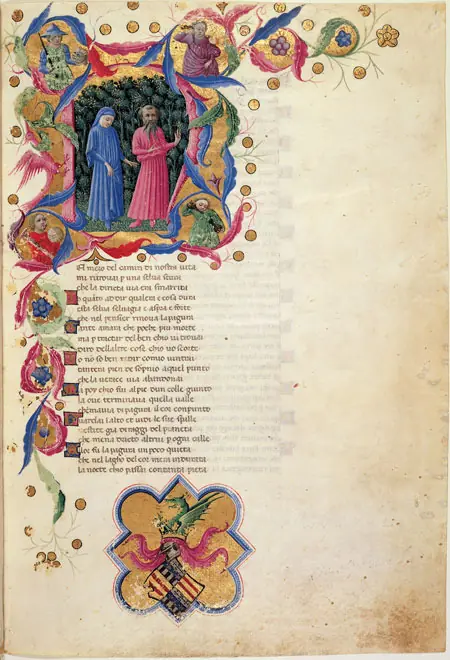 El meço del camin di nostra vita
mi ritrovai p una selva scura
che la diricta via era smarrita
quāto adir qualera e cosa dura
esta selva selvagia e aspra e forte
che nel penser rinova la paura
Tante amara che pocho piu morte
ma p tractar del ben chio vi trovai
diro dellaltre cose chio vo scorte
o nō so ben redir comio vintrai
tantera pien de sopnio aquel punto
che la verace via abandonai
a poi chio fui al pie dun colle giunto
la ove terminava quella valle
che mavia di paura il cor conpunto
Guardai i alto et vidi le sue spalle
vestite gia de raggi del pianeta
che mena dricto altrui p ogni calle
lor fu la paura un poco queta
che nel lagho del cor mera indurata
la nocte chio passai con tanta pieta